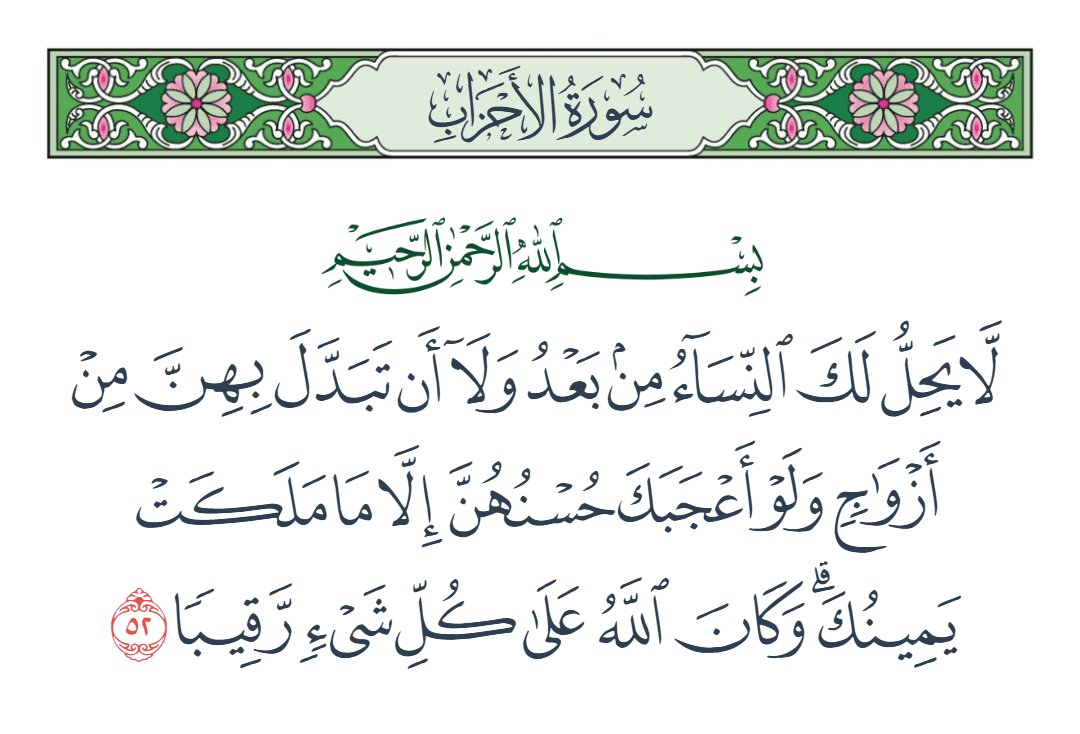 سُورَةُ الأَحْزَابِ
بِسْمِ ٱللَّهِ ٱلرَّحْمَٰنِ ٱلرَّحِيمِ
لَّا يَحِلُّ لَكَ ٱلنِّسَآءُ مِنۢ بَعْدُ وَلَآ أَن تَبَدَّلَ بِهِنَّ مِنْ
أَزْوَٰجٍ وَلَوْ أَعْجَبَكَ حُسْنُهُنَّ إِلَّا مَا مَلَكَتْ
يَمِينُكَ ۗ وَكَانَ ٱللَّهُ عَلَىٰ كُلِّ شَىْءٍ رَّقِيبًا ٥٢